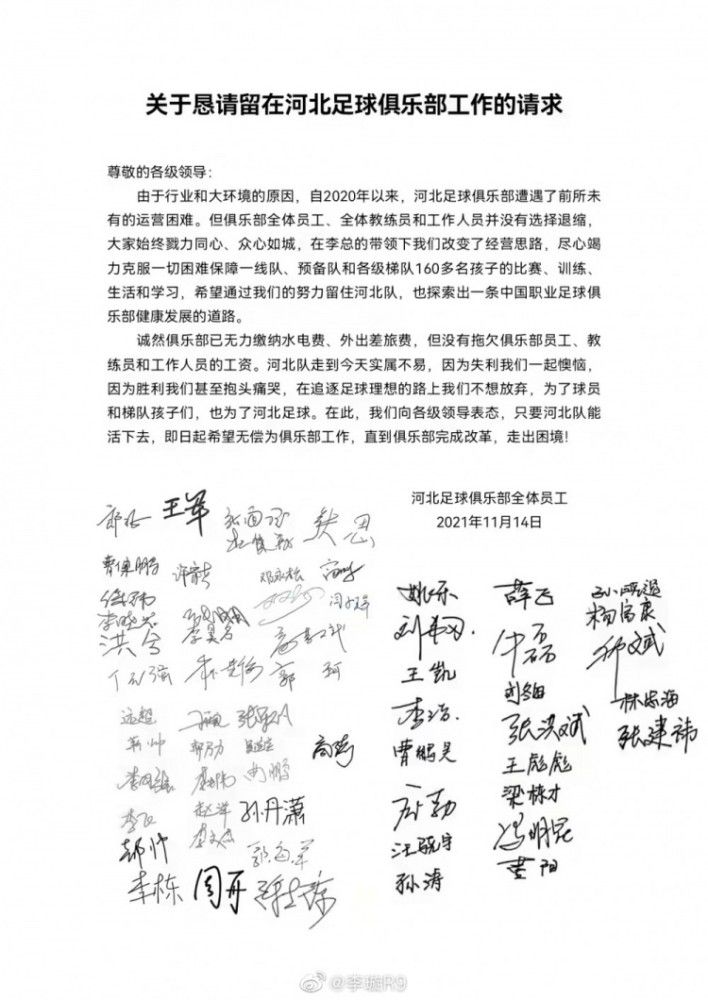 关于恳请留在河北足球俱乐部工作的请求
尊敬的各级领导：
由于行业和大环境的原因，自2020年以来，河北足球俱乐部遭遇了前所未
有的运营困难。但俱乐部全体员工、全体教练员和工作人员并没有选择退缩，
大家始终戮力同心、众心如城，在李总的带领下我们改变了经营思路，尽心竭
力克服一切困难保障一线队、预备队和各级梯队160多名孩子的比赛、训练、
生活和学习，希望通过我们的努力留住河北队，也探索出一条中国职业足球俱
乐部健康发展的道路。
诚然俱乐部已无力缴纳水电费、外出差旅费，但没有拖欠俱乐部员工、教
练员和工作人员的工资。河北队走到今天实属不易，因为失利我们一起懊恼，
因为胜利我们甚至抱头痛哭，在追逐足球理想的路上我们不想放弃，为了球员
和梯队孩子们，也为了河北足球。在此，我们向各级领导表态，只要河北队能
活下去，即日起希望无偿为俱乐部工作，直到俱乐部完成改革，走出困境！
河北足球俱乐部全体员工
2021年11月14日
王军
姚乐
薛飞
杨富康
王凯
李浩
张洪斌
林忠海
张建祎
曹鹏昊
王彪彪
梁栋才
孙丹潇
汪晓宇
冯明昆
李栋
周开
孙涛
黄阳
@李璇R9